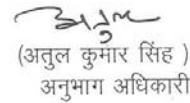 अतुल
(अतुल कुमार सिंह )
अनुभाग अधिकारी